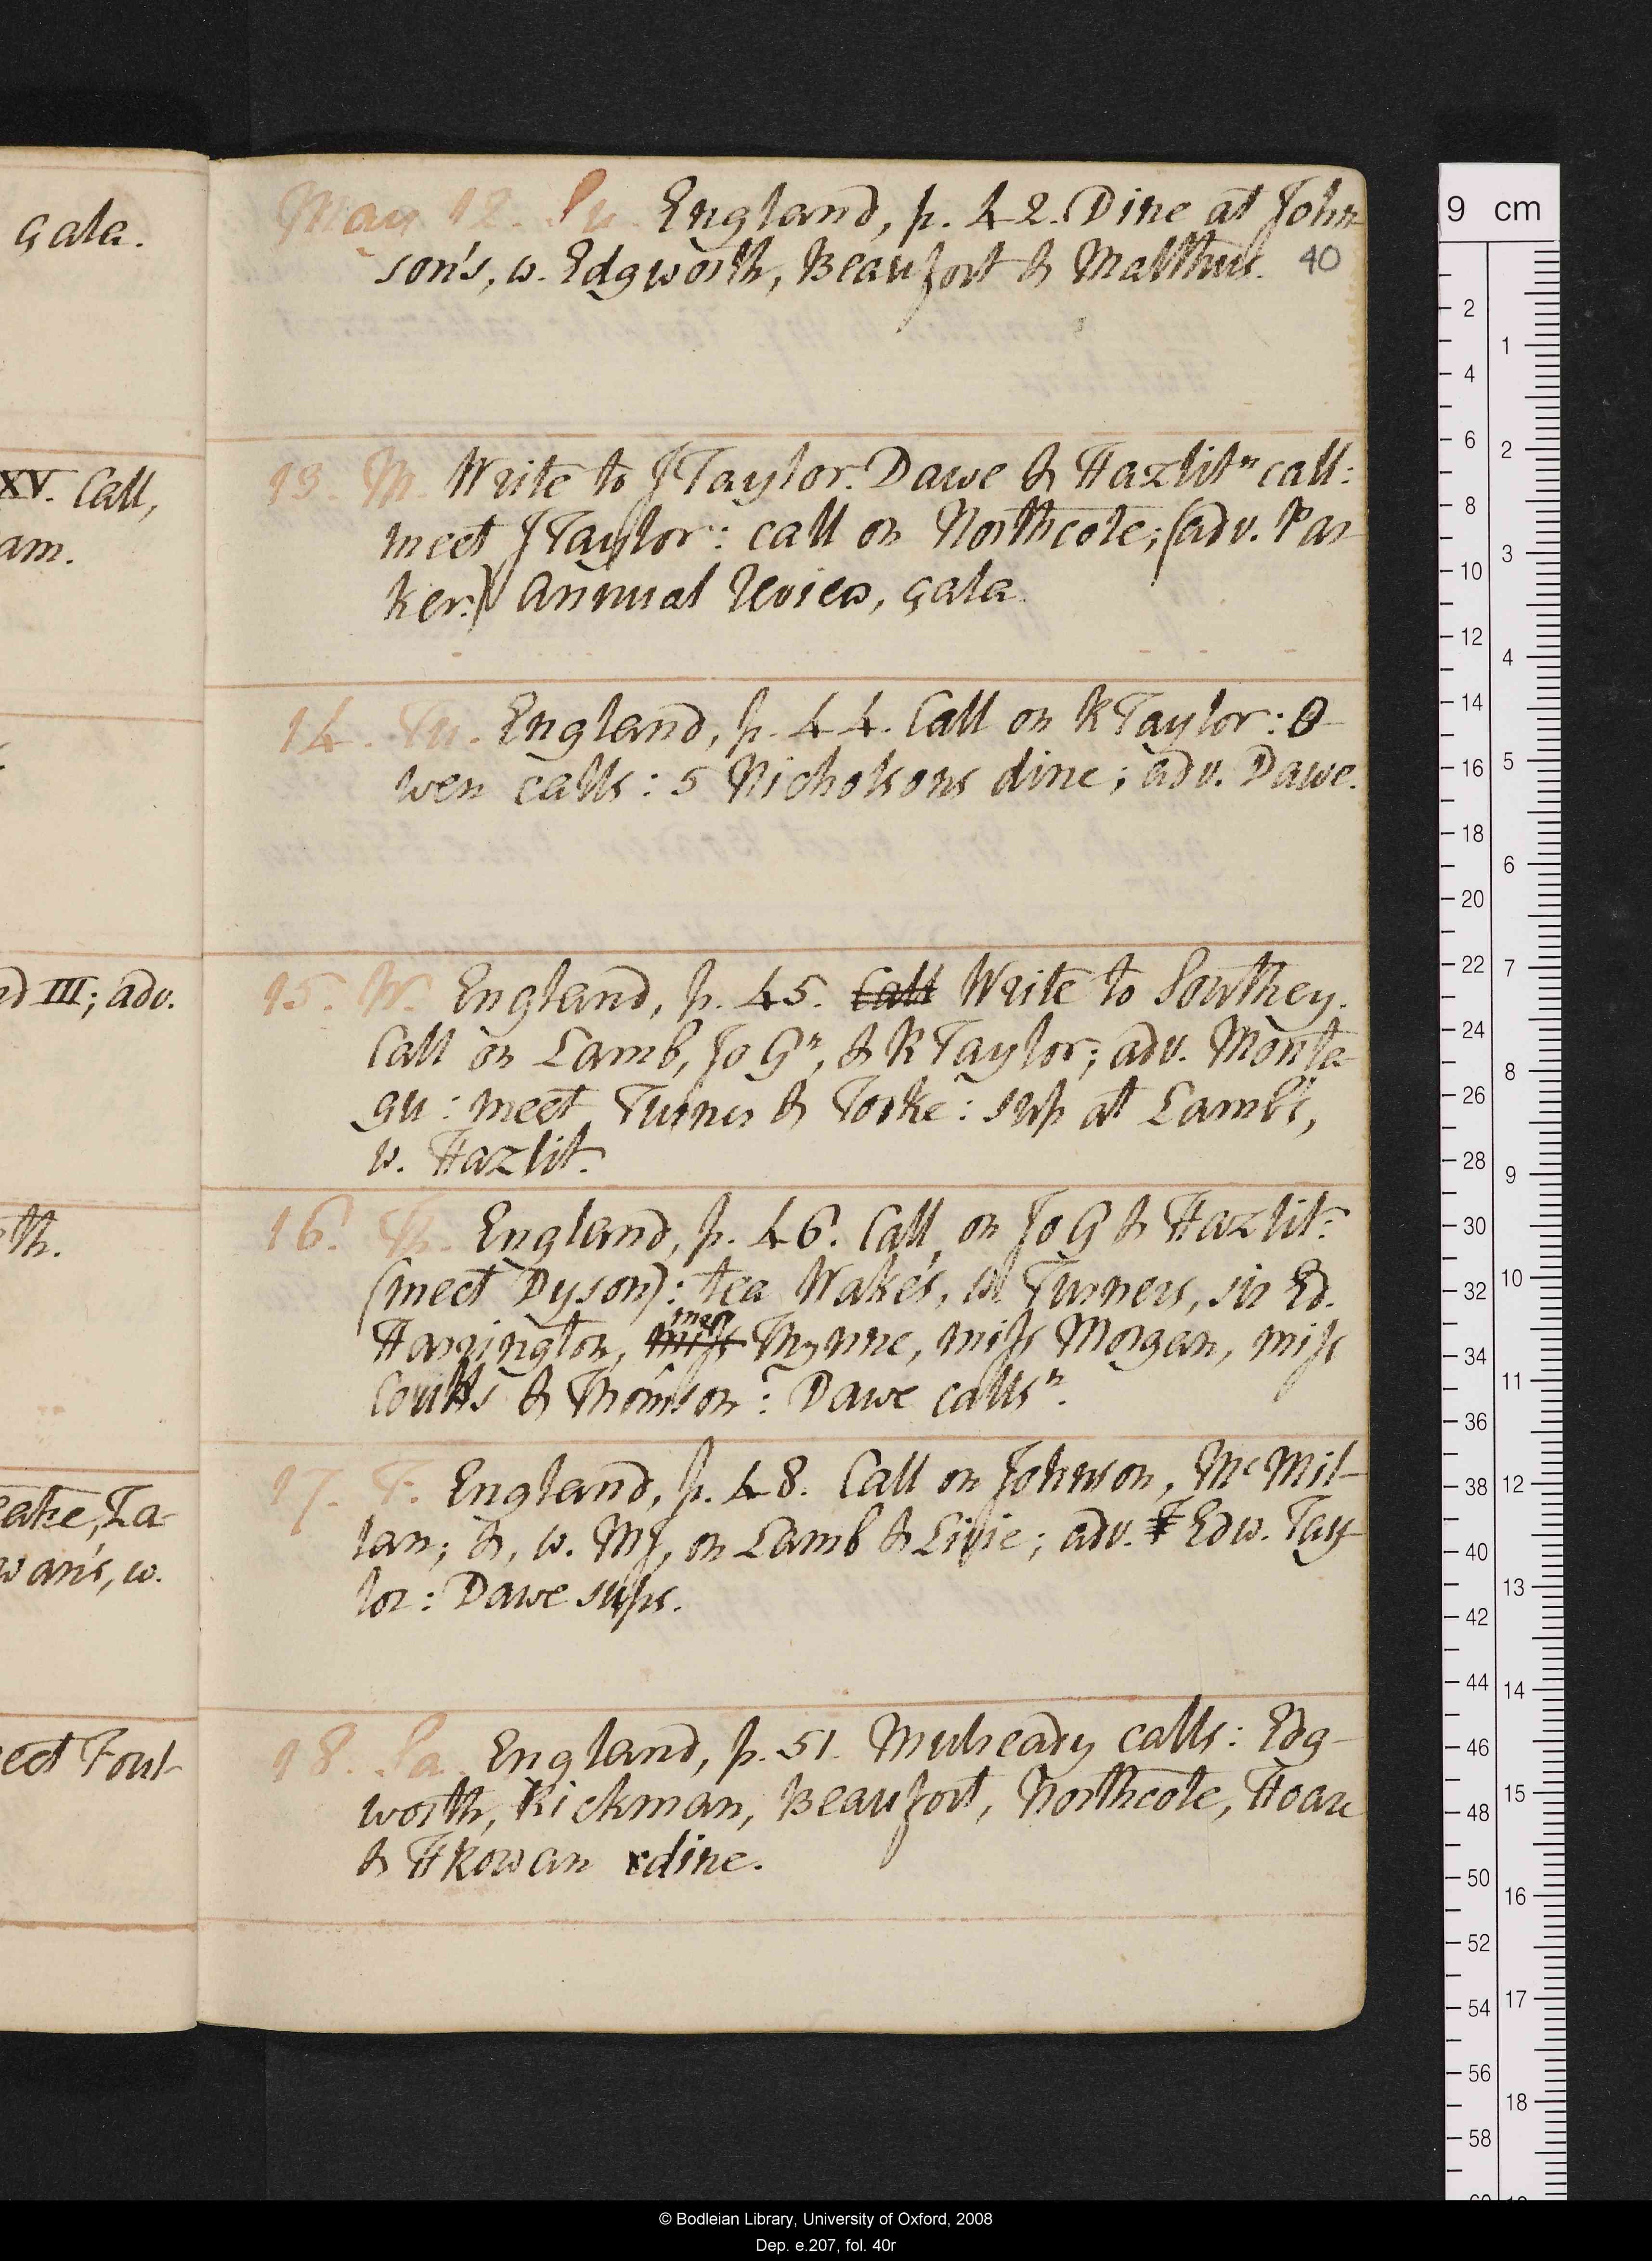 gala.
XV. Call,
am.
d III; adv.
th.
eake, La-
wan's, w.
eet Foul-
May 12. Su. England, p. 42. Dine at John
son's, w. Edgworth, Beaufort & Malthus.
40
13. M. Write to J Taylor. Dawe & Hazlitⁿ call:
meet J Taylor: call on Northcote; (adv. Par
ker.) Annual Review, gala.
14. Tu. England, p. 44. Call on R Taylor: O-
wen calls: 5 Nicholsons dine; adv. Dawe.
15. W. England, p. 45. Call Write to Southey.
Call on Lamb, Jo Gⁿ, & R Taylor; adv. Monta-
gu: meet Turner & Tooke: sup at Lamb's,
w. Hazlit.
16. Th. England, p. 46. Call, on Jo G & Hazlitⁿ
(meet Dyson): tea Wake's, w. Turners, sir Ed.
Harrington, miss Thynne, miss Morgan, miss
Coutts & Thomson: Dawe callsⁿ.
17. F. England, p. 48. Call on Johnson, McMil-
lan; &, w. MJ, on Lamb & Livie; adv. Edw. Tay-
lor: Dawe sups.
18. Sa. England, p. 51. Mulready calls: Edg-
worth, Rickman, Beaufort, Northcote, Hoare
& H Rowan dine.
9 cm
2 4 6 8 10 12 14 16 18 20 22 24 26 28 30 32 34 36 38 40 42 44 46 48 50 52 54 56 58
1 2 3 4 5 6 7 8 9 10 11 12 13 14 15 16 17 18
© Bodleian Library, University of Oxford, 2008
Dep. e.207, fol. 40r